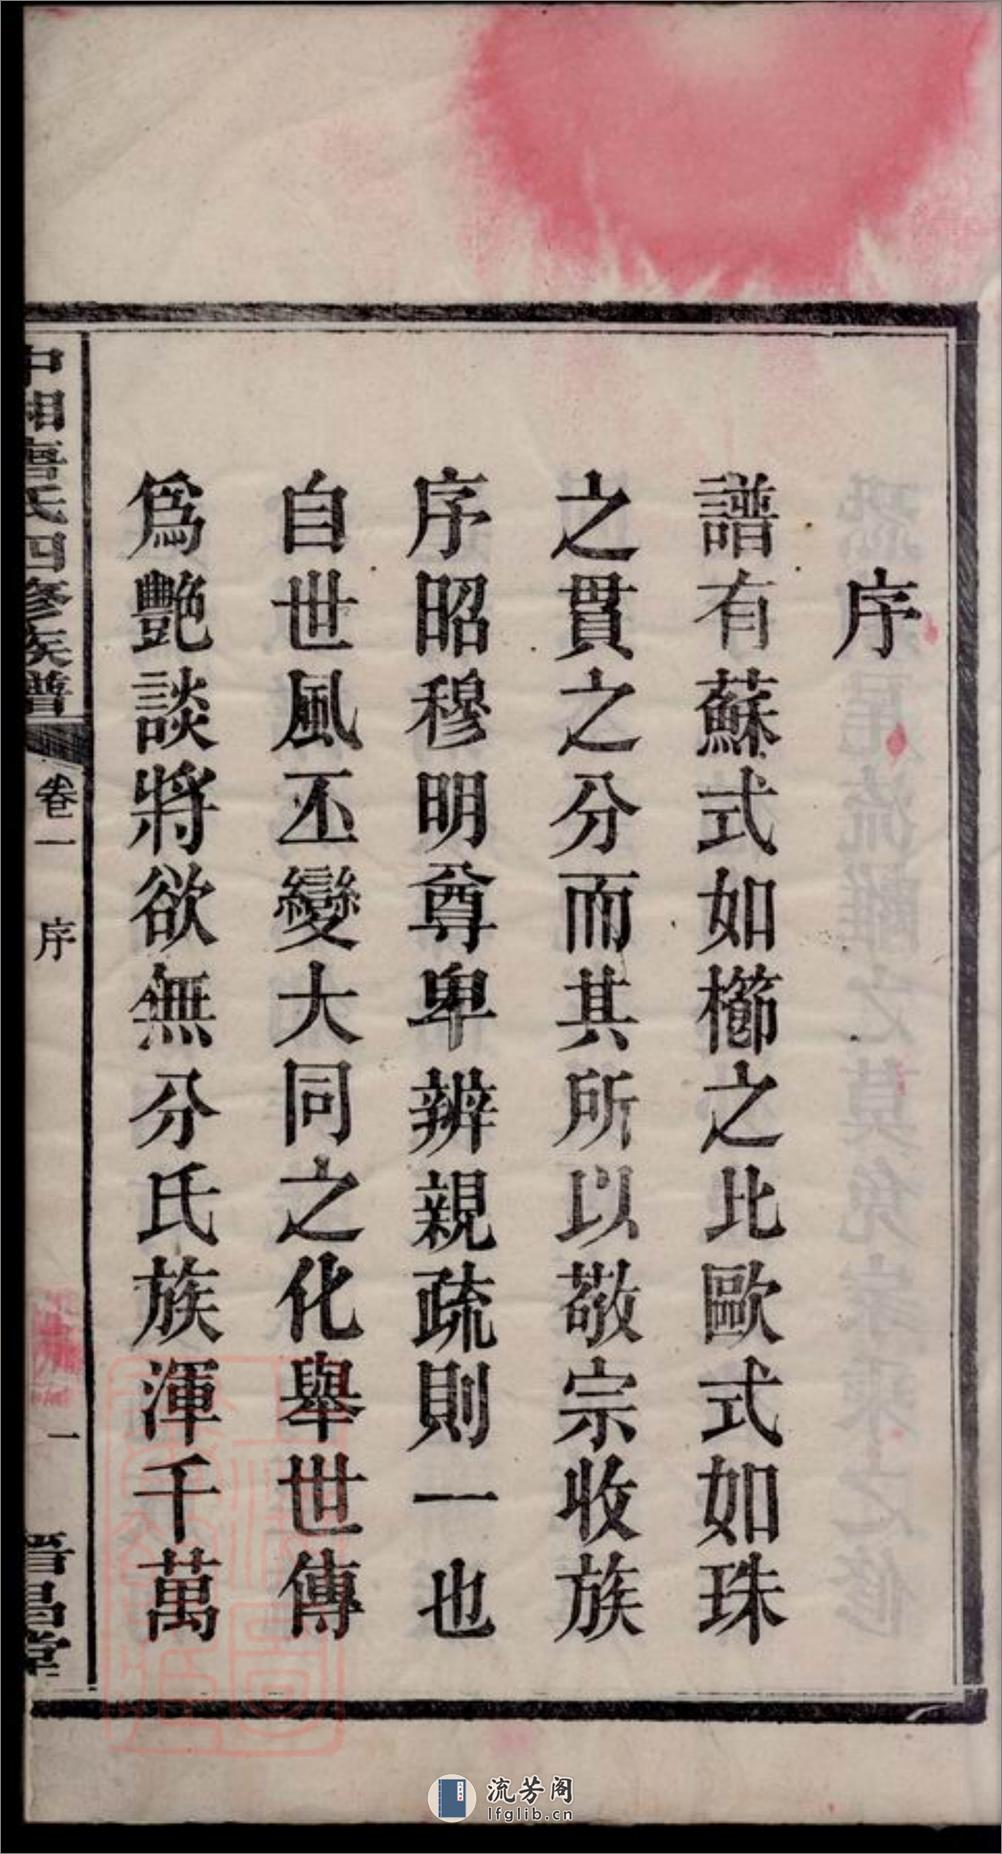 序
譜有蘇式如櫛之比歐式如珠
之貫之分而其所以敬宗收族
序昭穆明尊卑辨親疏則一也
自世風丕變大同之化舉世傳
爲艷談將欲無分氏族渾千萬
中湘唐氏四修族譜
卷一 序
一
晋昌堂
流芳阁
lfglib.cn